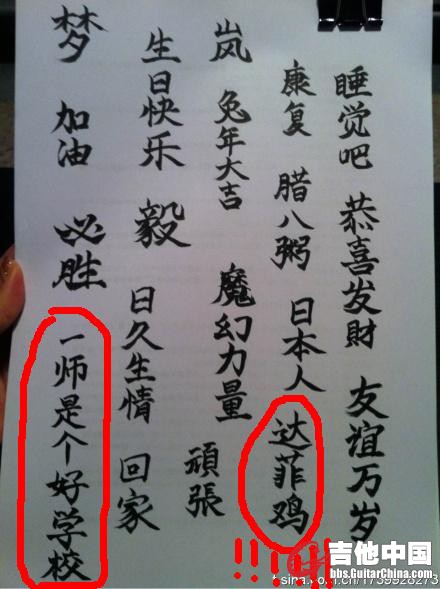 睡觉吧
恭喜发財
友谊万岁
康复
腊八粥
日本人
达菲鸡
岚
兔年大吉
魔幻力量
頑張
生日快乐
毅
日久生情
回家
梦
加油
必胜
一师是个好学校
!!!!!
吉他中国
bbs.GuitarChina.com